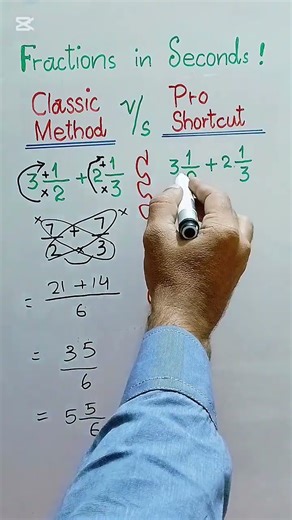 Fractions in Seconds !
Classic Method v/s Pro Shortcut
3 1/2 + 2 1/3
3 1/ + 2 1/3
7/2 + 7/3
= 21 + 14 / 6
= 35/6
= 5 5/6